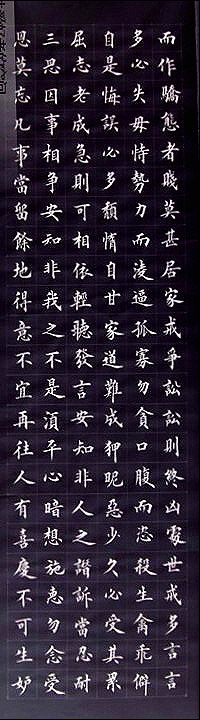 而作驕態者賤莫甚居家戒爭訟訟則終凶處世戒多言言
多必失毋恃勢力而凌逼孤寡勿貪口腹而恣殺生禽乖僻
自是悔誤必多頹惰自甘家道難成狎昵惡少久必受其累
屈志老成急則可相依輕聽發言安知非人之譖訴當忍耐
三思因事相爭安知非我之不是湏平心暗想施惠勿念受
恩莫忘凡事當留餘地得意不宜再往人有喜慶不可生妒